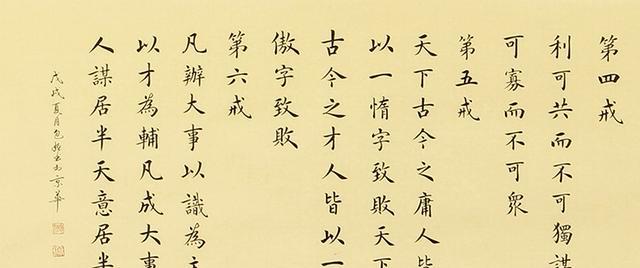 第四戒
利可共而不可獨謀
可寡而不可眾
第五戒
天下古今之庸人皆
以一惰字致敗天下
古今之才人皆以一
傲字致敗
第六戒
凡辦大事以識為主
以才為輔凡成大事
人謀居半天意居半
戊戌夏月包
京華